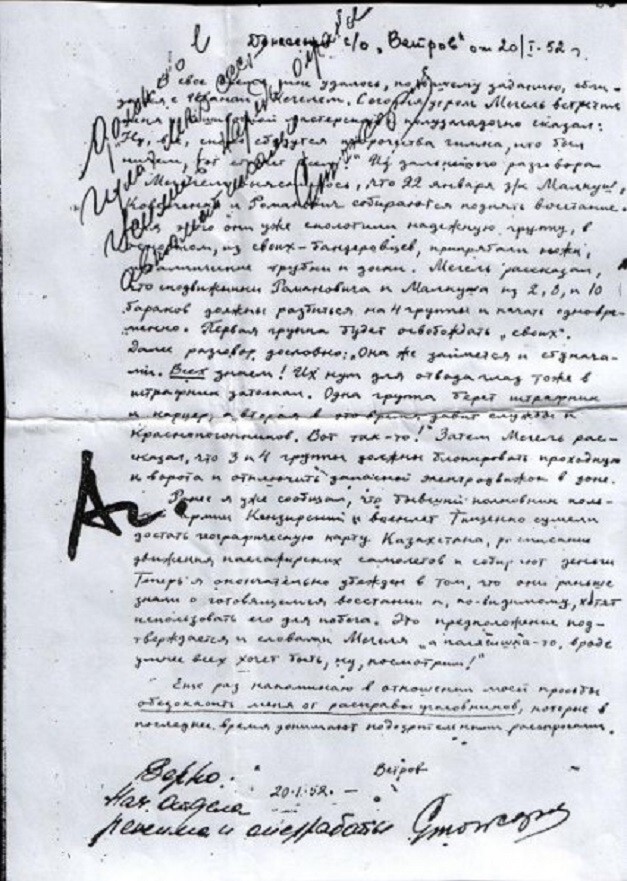 Донесение с/о „Ветров" от 20/I-52 г.
В свое мне удалось, по Вашему заданию,
с Мегелем. Сегодня утром Мегель встретил
меня и полузагадочно сказал:
"Ну, вот, гимна, кто был
ничем, тот станет Из дальнейшего разговора
с Мегелем выяснилось, что 22 января з/к Малкуш,
Коверченко и Романович собираются поднять восстание.
Для этого они уже сколотили надежную группу, в
основном, из своих - бандеровцев, припрятали ножи,
металлические трубки и доски. Мегель рассказал,
что сподвижники Романовича и Малкуша из 2, 8, и 10
бараков должны разбиться на 4 группы и начать одновре-
менно. Первая группа будет освобождать „своих".
Далее разговор, дословно: „Она же займется и стукача-
ми. Всех знаем! Их кум для отвода глаз тоже в
штрафник затолкал. Одна группа берет штрафник
и карцер, а вторая в это время давит службы и
краснопогонников. Вот так-то!" Затем Мегель рас-
сказал, что 3 и 4 группы должны блокировать проходную
и ворота и отключить запасной электродвижок в зоне.
Ранее я уже сообщал, что бывший полковник поль-
армии Кензирский и военлет Тищенко сумели
достать географическую карту Казахстана, расписание
движения пассажирских самолетов и собирают деньги
Теперь я окончательно убежден в том, что они раньше
знали о готовящемся восстании и, по-видимому, хотят
использовать его для побега. Это предположение под-
тверждается и словами Мегеля „а полячишка-то, вроде
умнее всех хочет быть, ну, посмотрим!"
Еще раз напоминаю в отношении моей просьбы
обезопасить меня от расправы уголовников, которые в
последнее время донимают подозрительными расспросами.
Ветров
20.1.52.
Верно.
Нач. отдела
режима и оперработы Стожаров